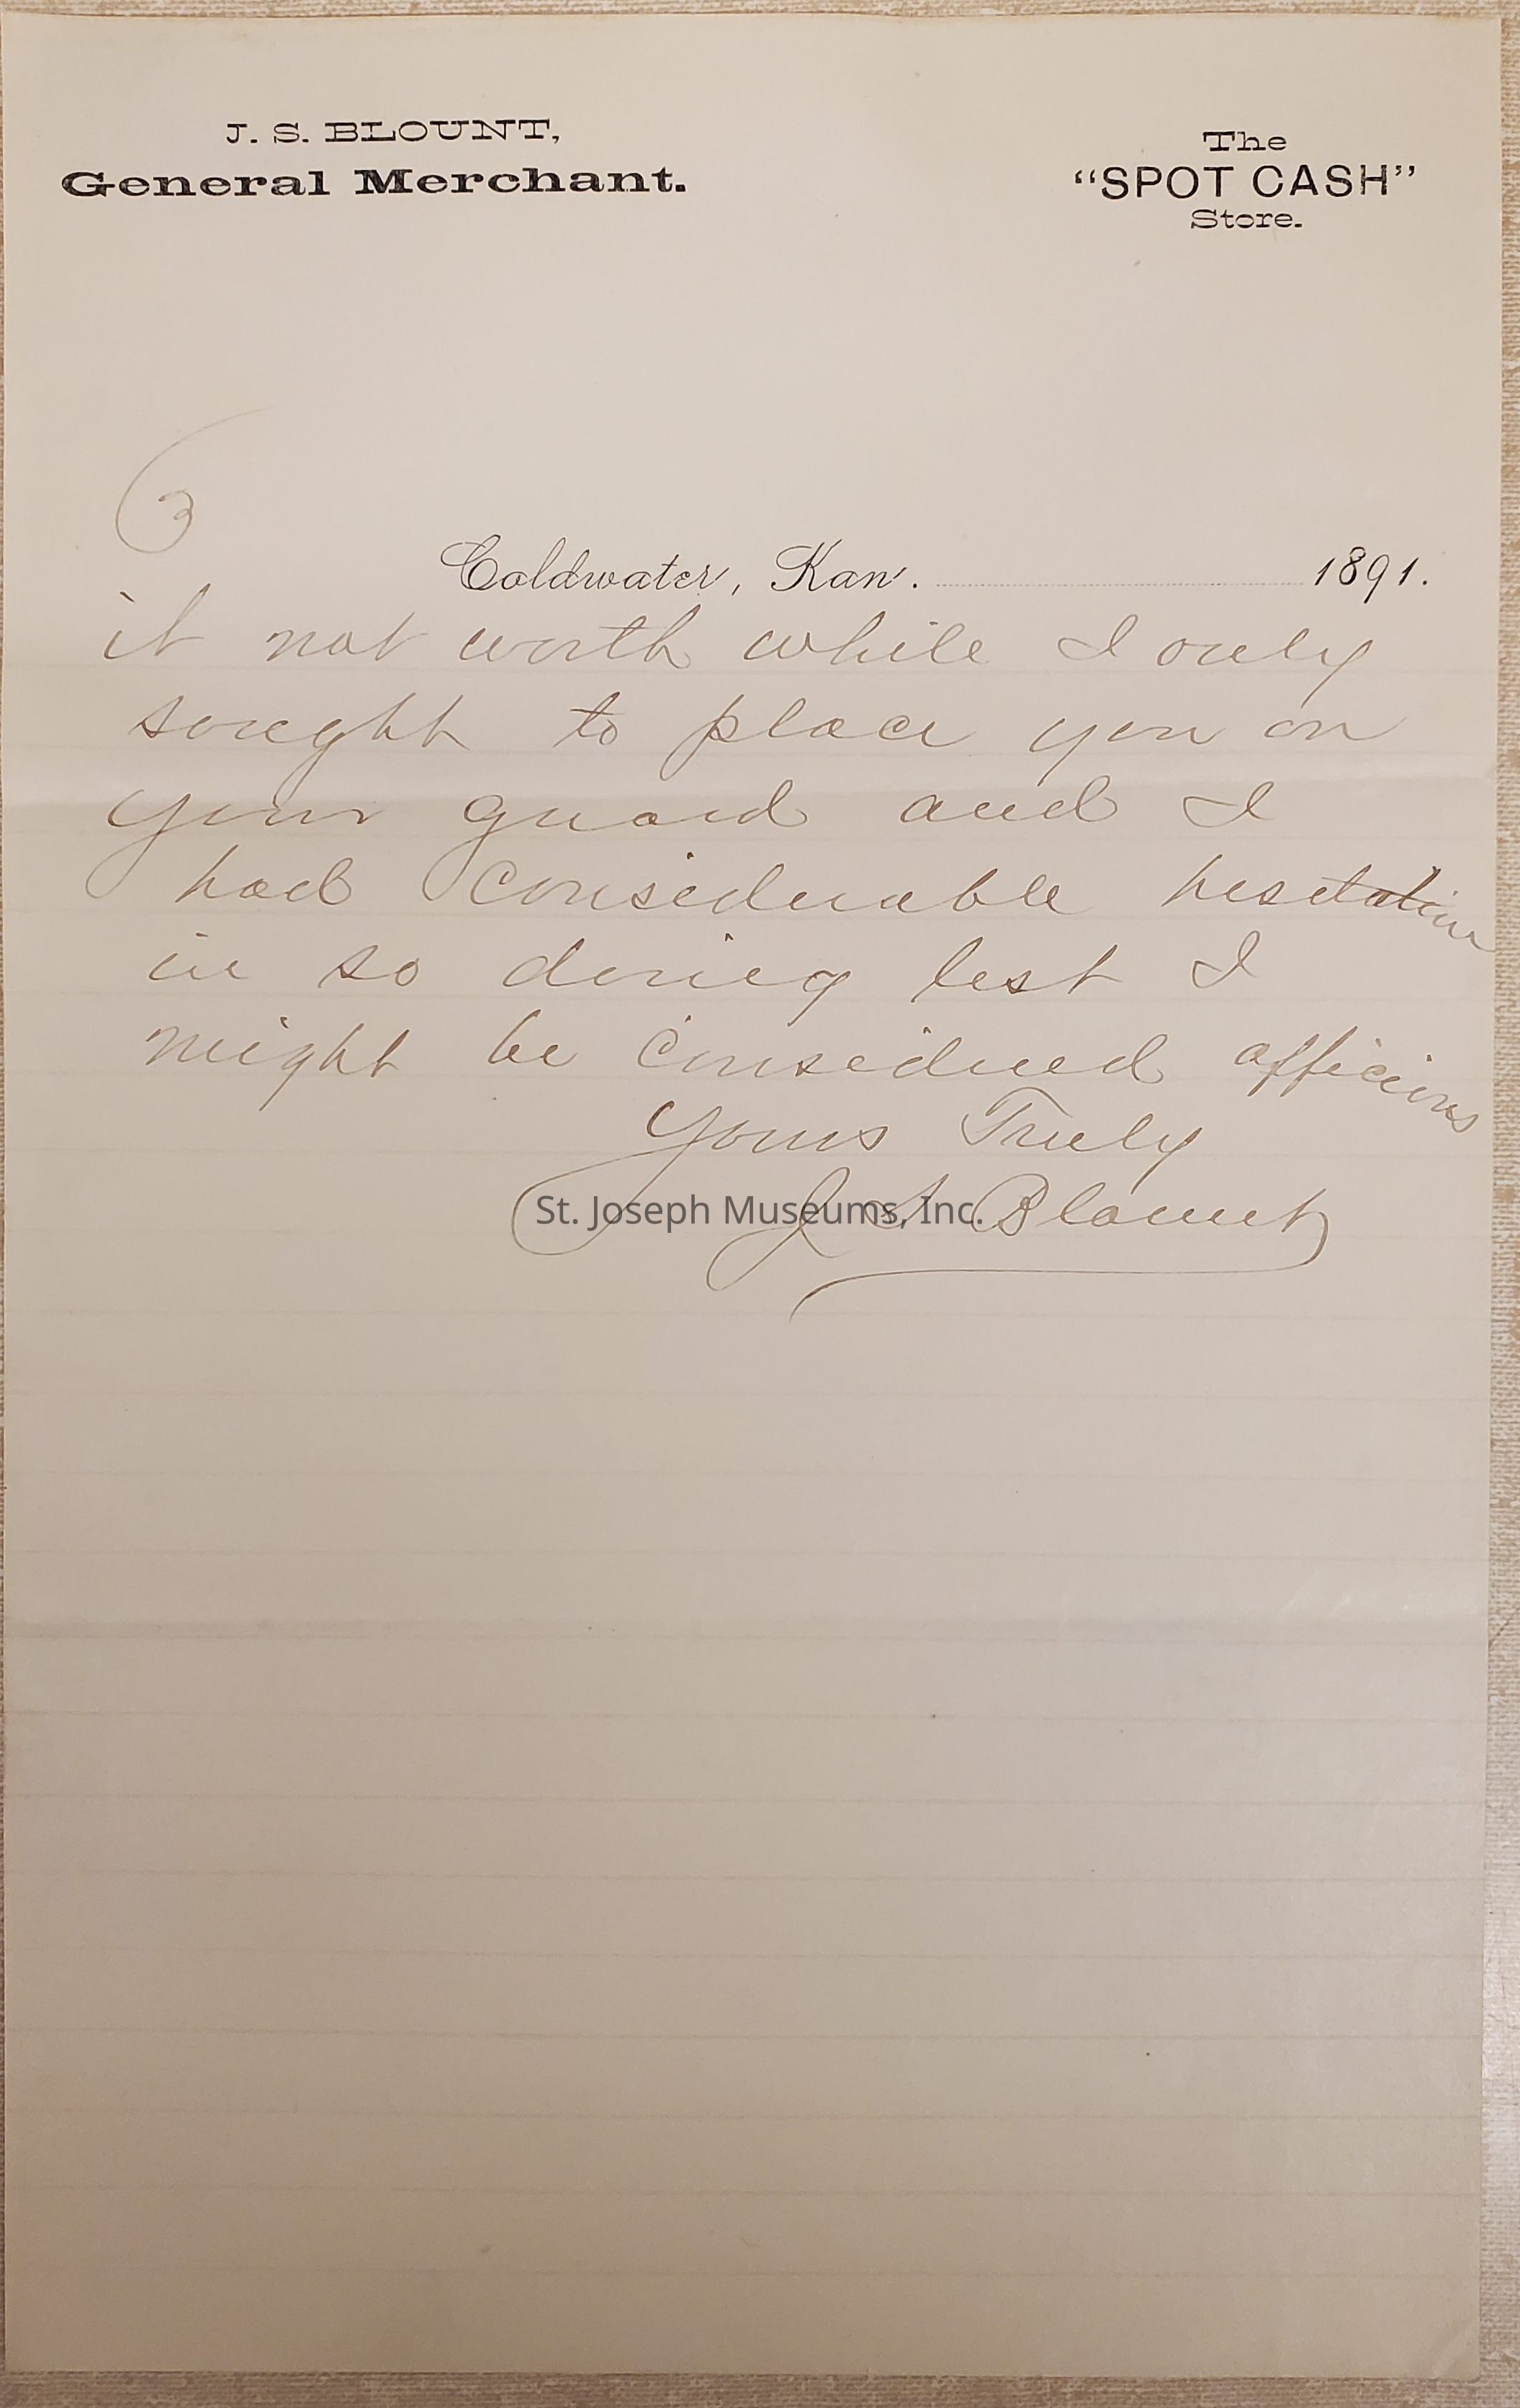 J. S. BLOUNT,
General Merchant.
The
“SPOT CASH”
Store.
3
Coldwater, Kan. 1891.
it not worth while I only
sought to place you on
your guard and I
had considerable hesitation
in so doing lest I
might be considered officious
Yours Truly
J S Blount
St. Joseph Museums, Inc.